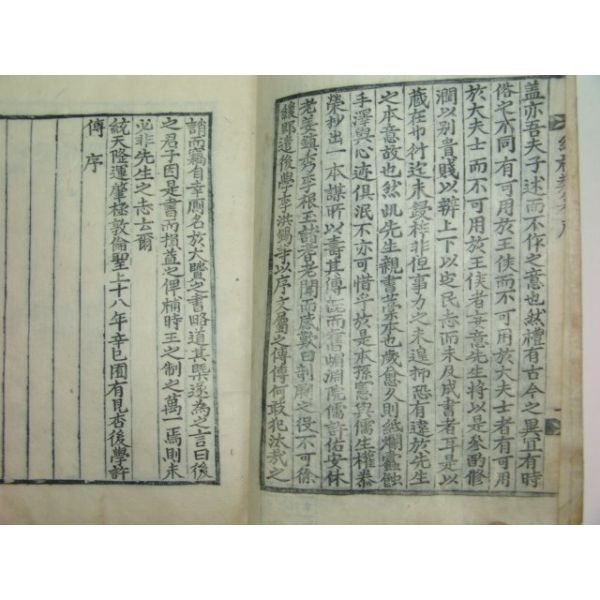 盖亦吾夫子述而不作之意也然禮有古今之異冝有時
俗之不同有可用於王侯而不可用於大夫士者有可用
於大夫士而不可用於王侯者毋意先生将以是參酌修
潤以别貴賤以辨上下以㝎民志而未及成書者耳是以
蔵在巾衍迄未鋟梓非但事力之未遑抑恐有違於先生
之本意故也然 先生親書藁本也歲愈久則紙爛蠧蝕
手澤與心迹俱泯不亦可惜乎於是本孫憲與儒生權泰
榮抄出一本謀所以壽其傳旣而 嵋淵院儒許佑安休
老姜鎮秀李根玉諸耆老聞而感歎曰剞劂之役不可徐
遣後學李洪錫等以序文属之傳傳何敢犯汰哉之
誚而竊自幸厠名於大賢之書略道其槩遂為之言曰後
之君子因是書而損益之俾補時王之制之萬一焉則未
必非先生之志云爾
統天隆運肇極敦倫聖上十八年辛巳 後學許
傳序